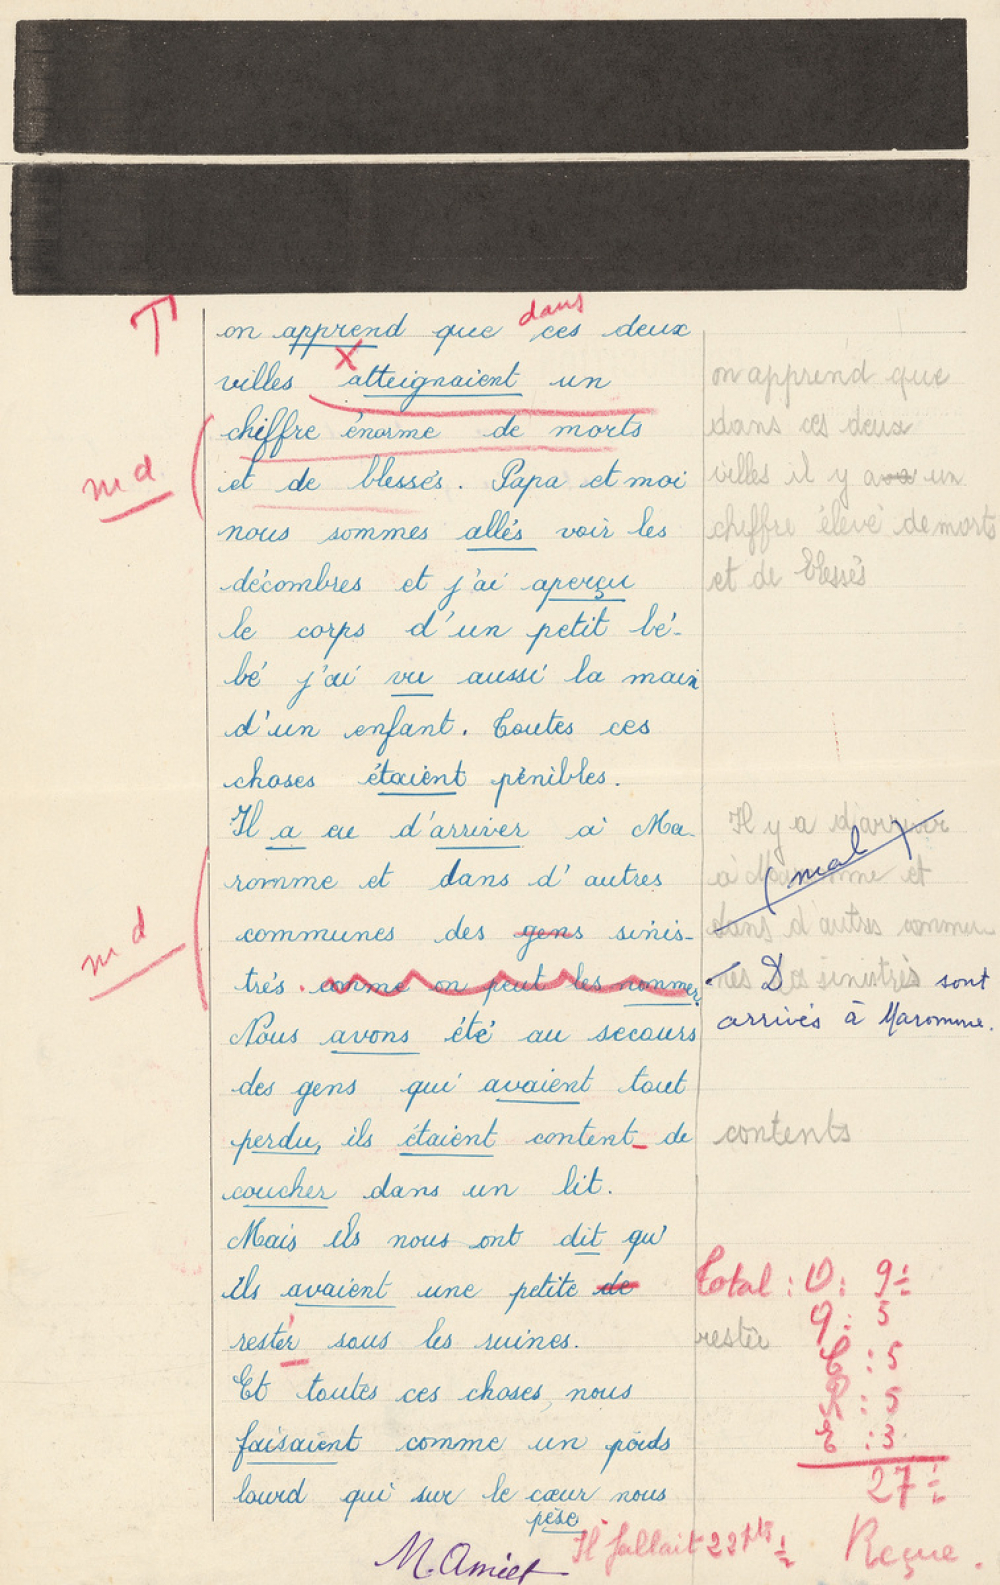 T
dans
on apprend que ces deux
villes atteignaient un
chiffre énorme de morts
et de blessés. Papa et moi
nous sommes allés voir les
décombres et j'ai aperçu
le corps d'un petit bé-
bé j'ai vu aussi la main
d'un enfant. Toutes ces
choses étaient pénibles.
Il a eu d'arriver à Ma-
romme et dans d'autres
communes des gens sinis-
trés. comme on peut les nommer.
Nous avons été au secours
des gens qui avaient tout
perdu, ils étaient content de
coucher dans un lit.
Mais ils nous ont dit qu'
ils avaient une petite de
restér sous les ruines.
Et toutes ces choses, nous
faisaient comme un poids
lourd qui sur le cœur nous
pèse
md
md
on apprend que
dans ces deux
villes il y a un
chiffre élevé de morts
et de blessés
Il y a d'arriver
à Maromme et
(mal)
dans d'autres commu
nes Des sinistrés sont
arrivés à Maromme.
contents
restée
Total : D : 9 ½
Q : 5
C : 5
R : 5
E : 3
27 ½
Il fallait 22 pts ½
Reçue.
M. Amiet